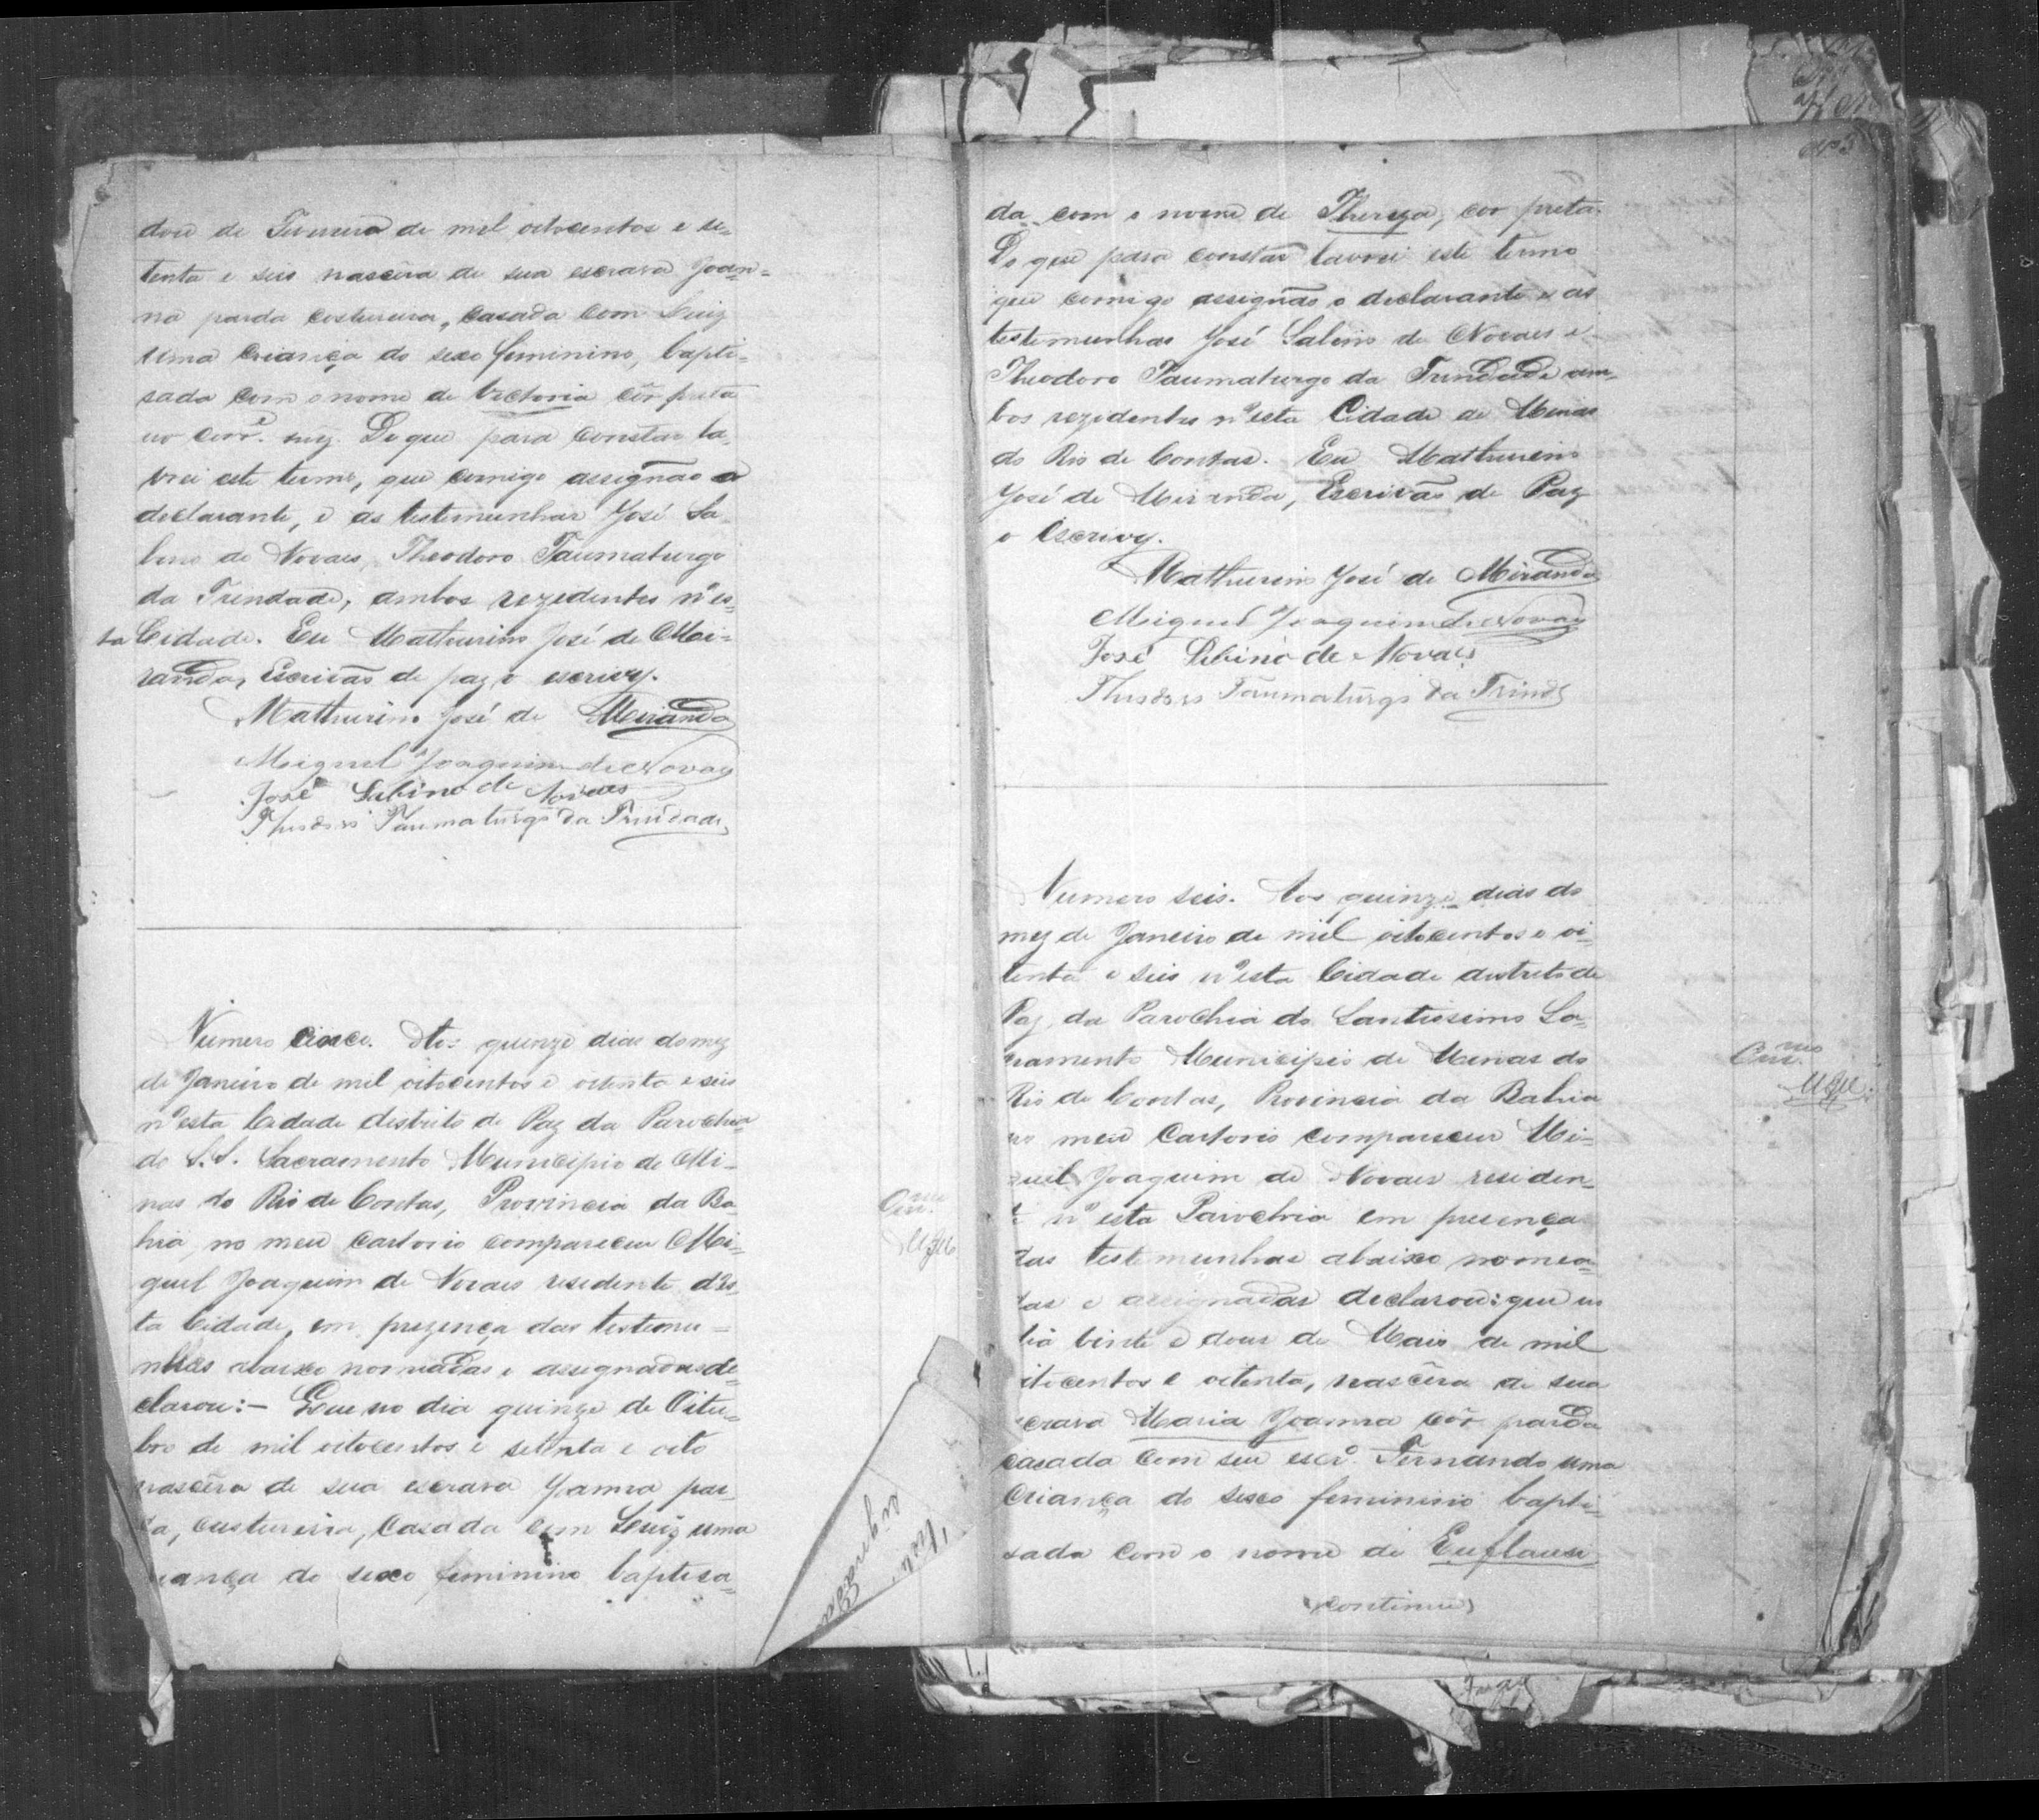 dou de Fevereiro de mil oitocentos e se-
tenta e seis nascêra de sua escrava Joan-
na parda costureira, casada com Luiz
uma criança do sexo feminino, bapti-
sada com o nome de Victoria côr preta
De que para constar la-
vrei este termo, que comigo assignão o
declarante, e as testemunhas José Sa-
bino de Novaes, Theodoro Taumaturgo
da Trindade, ambos rezidentes n'es-
ta Cidade. Eu Mathurino José de Mi-
randa, Escrivão de paz o escrivy.
Mathurino José de Miranda
Miguel Joaquim de Novaes
José Sabino de Novaes
Theodoro Taumaturgo da Trindade
Número cinco. Aos quinze dias do mez
de Janeiro de mil oitocentos e oitenta e seis
n'esta Cidade distrito de Paz da Parochia
do S.S. Sacramento Municipio de Mi-
nas do Rio de Contas, Provincia da Ba-
hia, no meu Cartorio compareceu Mi-
guel Joaquim de Novaes residente d'es-
ta Cidade, em prezença das testemu-
nhas abaixo nomiadas e assegnadas de-
clarou:- Que no dia quinze de Oitu-
bro de mil oitocentos e setenta e oito
nascêra de sua escrava Joanna par-
da, custureira, casada com Luiz uma
criança do sexo feminino baptisa-
da com o nome de Thereza, cor preta.
Do que para constar lavrei este termo
que comigo assignão o declarante e as
testemunhas José Sabino de Novaes e
Theodoro Taumaturgo da Trindade am-
bos rezidentes n'esta Cidade de Minas
do Rio de Contas. Eu Mathurino
José de Miranda, Escrivão de Paz
o Escrivy.
Mathurino José de Miranda
Miguel Joaquim de Novaes
José Sabino de Novaes
Theodoro Taumaturgo da Trind
Numero seis. Aos quinze dias do
mez de Janeiro de mil oitocentos e oi-
tenta e seis n'esta Cidade distrito de
Paz, da Parochia do Santissimo Sa-
cramento Municipio de Minas do
Rio de Contas, Provincia da Bahia
no meu Cartorio compareceu Mi-
guel Joaquim de Novaes residen-
te n'esta Parochia em presença
das testemunhas abaixo nomea-
das e assignadas declarou: que no
dia vinte e dous de Maio de mil
oitocentos e oitenta, nascêra de sua
escrava Maria Joanna côr parda
casada com seu escr.º Fernando uma
criança do sexo feminino bapti-
sada com o nome de Euflausi
(continua)